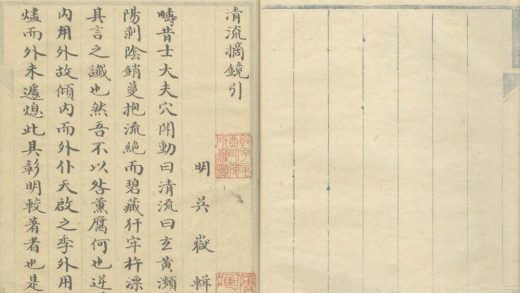 清流摘鏡引
明 吳嶽 輯
疇昔士大夫穴鬥動曰清流曰玄黃瀕
陽剥陰銷蔓抱流絕而碧藏犴牢杵漂
具言之讖也然吾不以咎薰腐何也逆
內用外故傾內而外仆天啟之季外用
燼而外未遽熄此其彰明較著者也是